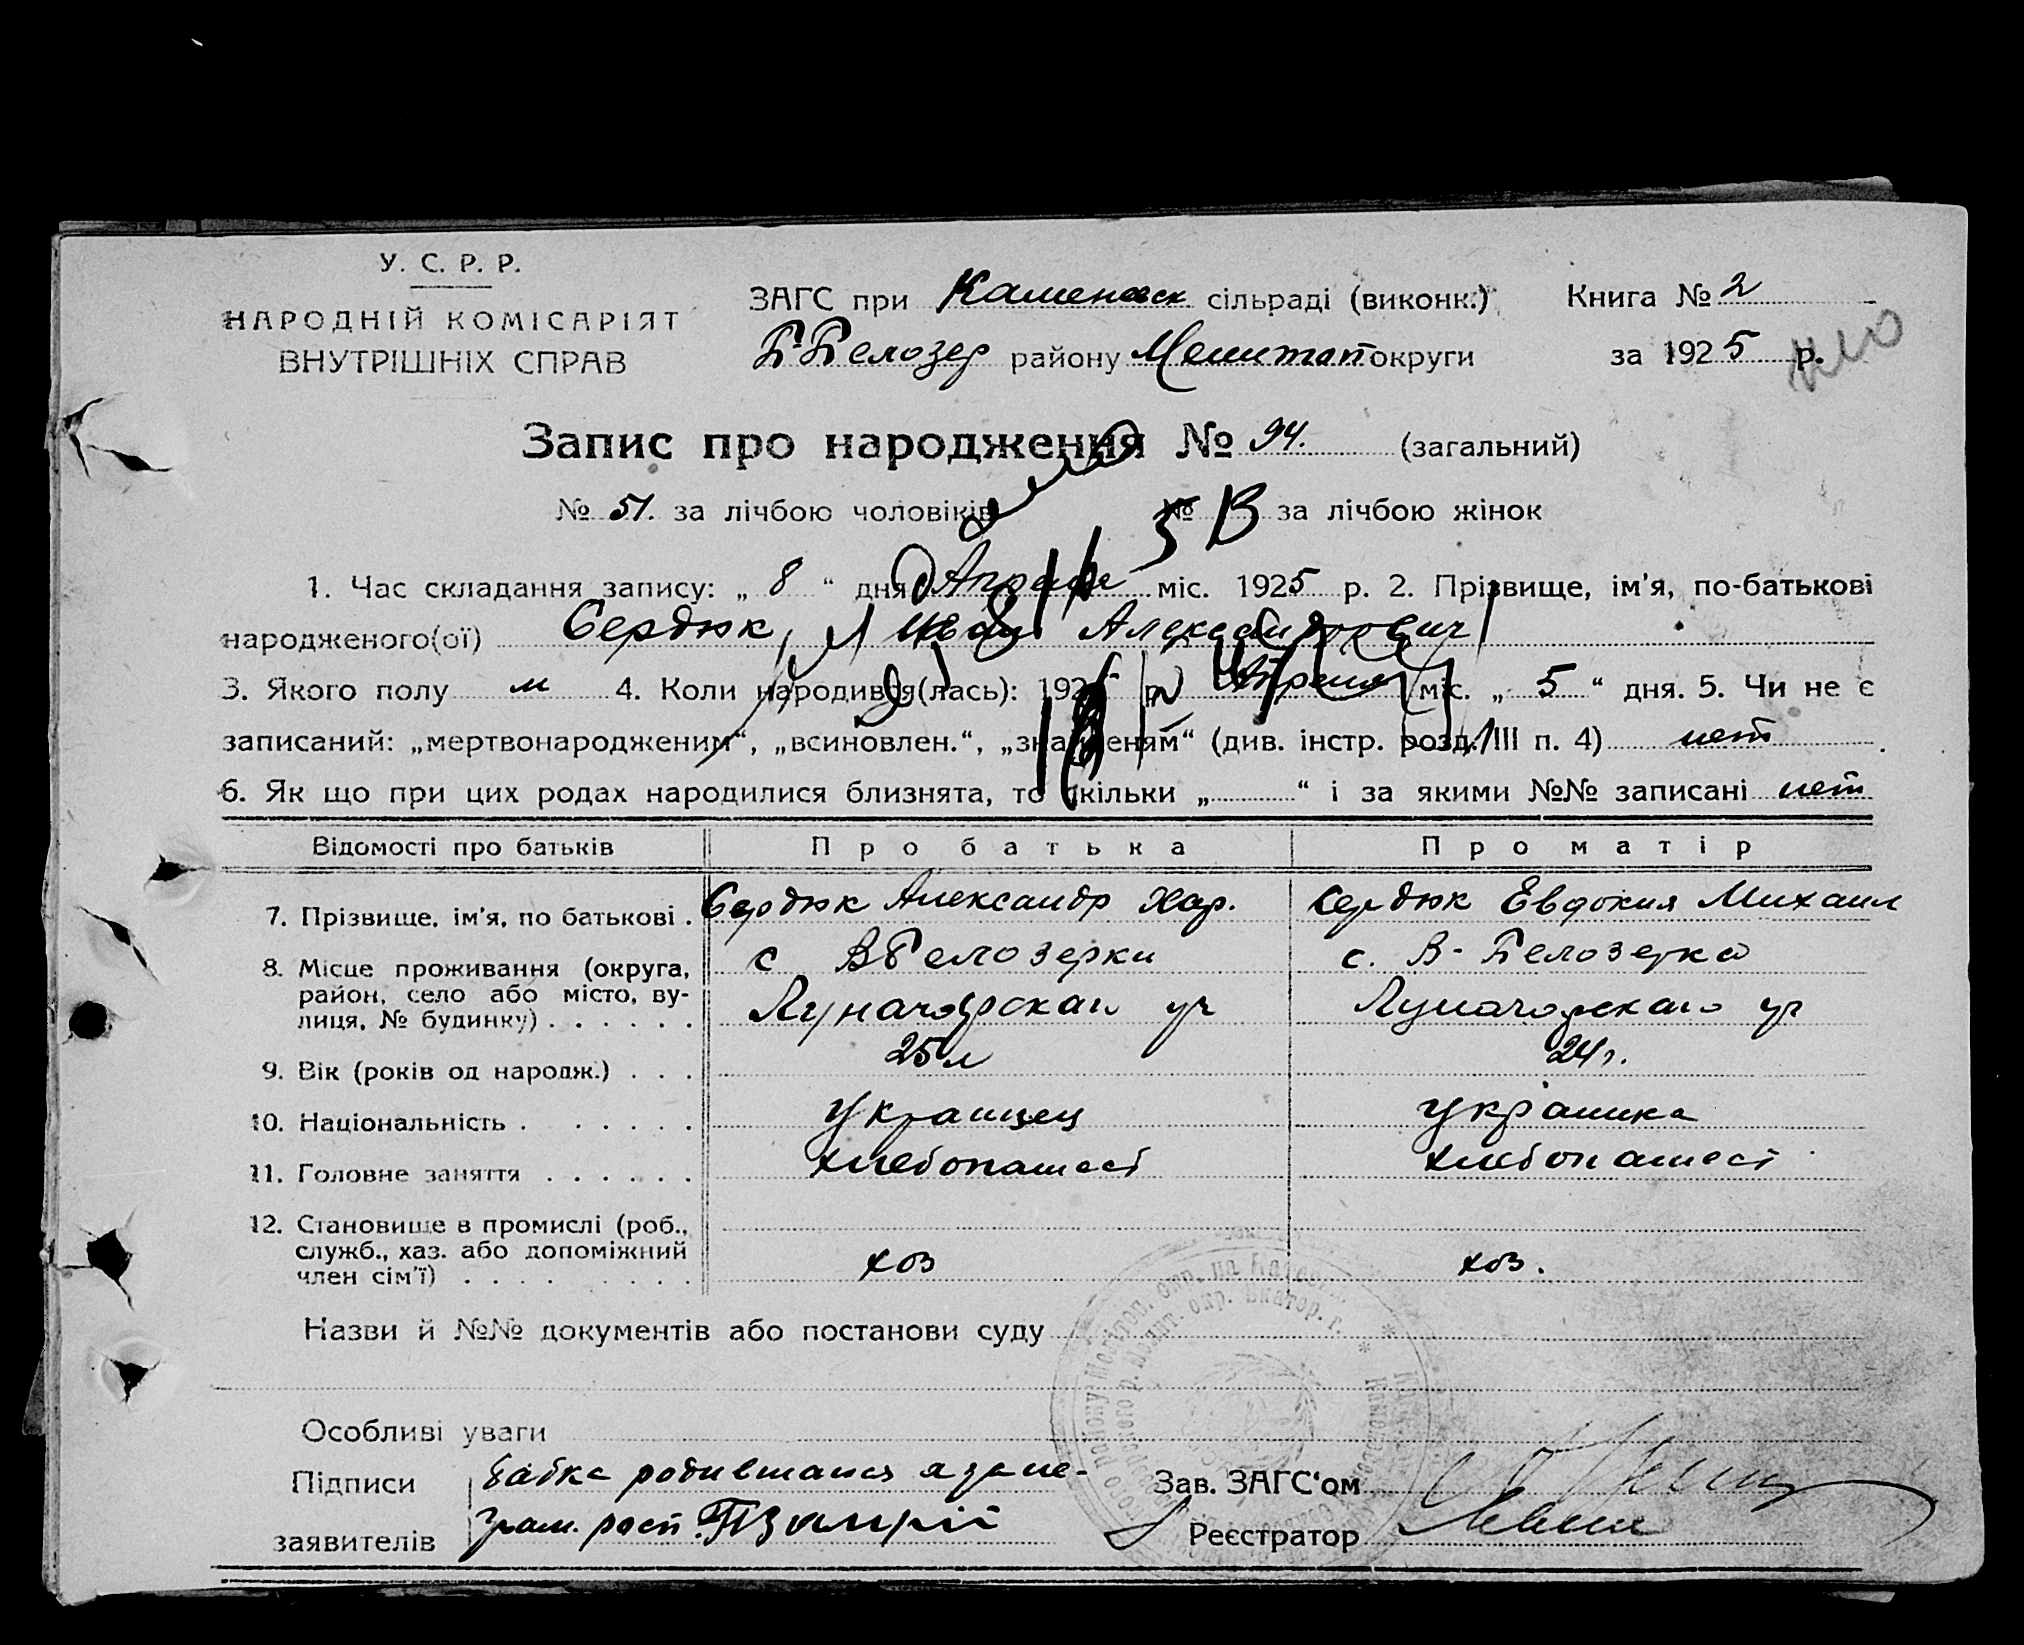 У. С. Р. Р.
НАРОДНІЙ КОМІСАРІЯТ
ВНУТРІШНІХ СПРАВ
ЗАГС при Каменск сільраді (виконк.)
Б-Белозер району Мелитоп округи
Книга № 2
за 1925 р.
Запис про народження № 94. (загальний)
№ 51. за лічбою чоловіків № за лічбою жінок
1. Час складання запису: „ 8 “ дня Апреля міс. 1925 р. 2. Прізвище, ім'я, по-батькові
народженого(ої) Сердюк Иван Александрович
3. Якого полу м 4. Коли народився(лась): 1925 р. Апреля міс. „ 5 “ дня. 5. Чи не є
записаний: „мертвонародженим“, „всиновлен.“, „знайденям“ (див. інстр. розд. III п. 4) нет
6. Як що при цих родах народилися близнята, то скільки „ “ і за якими №№ записані нет
Відомості про батьків Про батька Про матір
7. Прізвище, ім'я, по батькові . Сердюк Александр Хар. Сердюк Евдокия Михаил
8. Місце проживання (округа, с В Белозерки с. В-Белозерка
район, село або місто, ву-
лиця, № будинку) . . . . . . Луначарская ул Луначарская ул
9. Вік (років од народж.) . . . 25 л 24 г.
10. Національність . . . . . . Украинец Украинка
11. Головне заняття . . . . . . хлебопашест хлебопашест
12. Становище в промислі (роб.,
служб., хаз. або допоміжний
член сім'ї) . . . . . . . . хоз хоз.
Назви й №№ документів або постанови суду
Особливі уваги
Підписи Бабка родившаяся а за не-
заявителів грам. расп.
Зав. ЗАГС'ом
Реєстратор